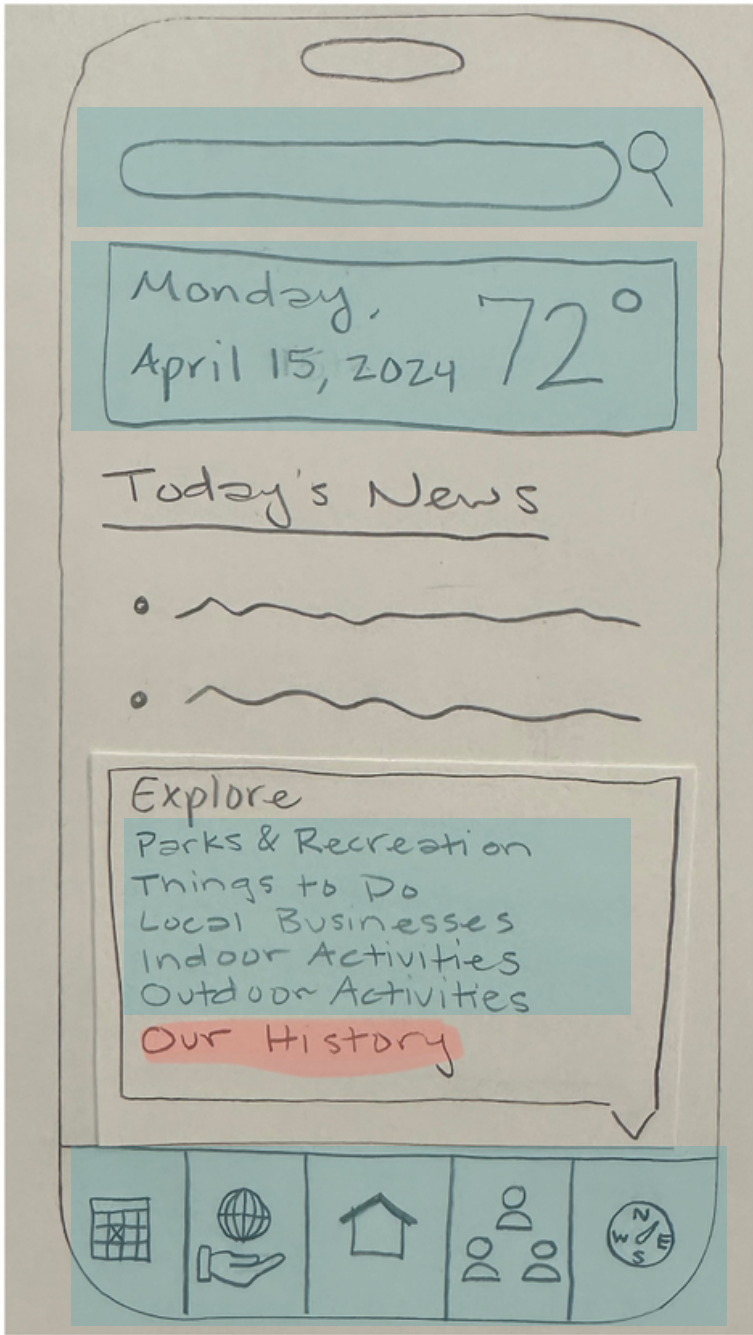 Monday,
April 15, 2024
72°
Today's News
Explore
Parks & Recreation
Things to Do
Local Businesses
Indoor Activities
Outdoor Activities
Our History
N
W E
S